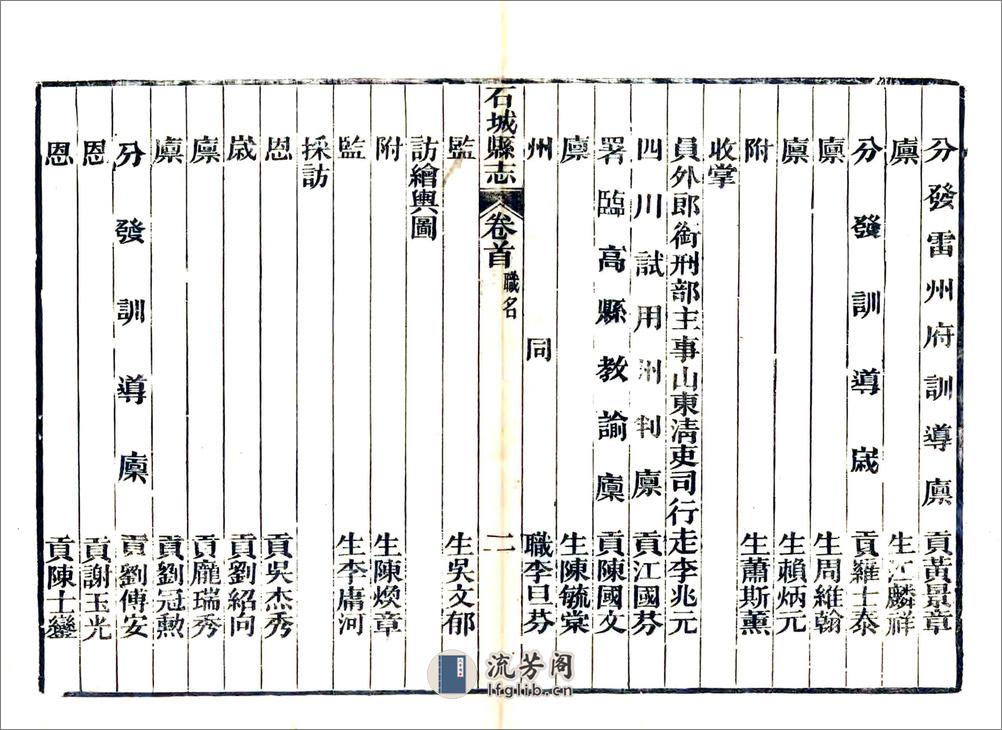 分發雷州府訓導廪貢黃景章
廪生江麟祥
分發訓導歲貢羅士泰
廪生周維翰
廪生賴炳元
附生蕭斯薰
收掌
員外郎銜刑部主事山東清吏司行走李兆元
四川試用州判廪貢江國芬
署臨高縣教諭廪貢陳國文
廪生陳毓棠
州同職李旦芬
石城縣志 卷首 職名 二
監生吳文郁
訪繪輿圖
附生陳煥章
監生李庸河
採訪
恩貢吳杰秀
歲貢劉紹向
廪貢龐瑞秀
廪貢劉冠勲
分發訓導廪貢劉傳安
恩貢謝玉光
恩貢陳士鑾
流芳阁
lfglib.cn